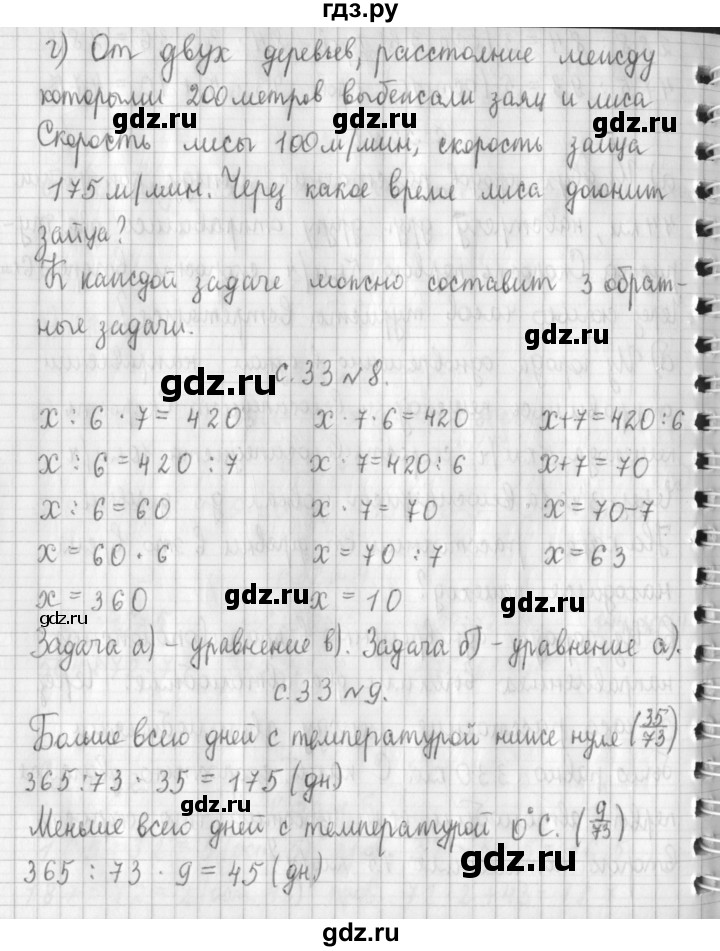 гдз.ру
г) От двух деревьев, расстояние между
которыми 200 метров выбежали заяц и лиса
gdz.ru gdz.ru
Скорость лисы 100 м/мин, скорость зайца
175 м/мин. Через какое время лиса догонит
зайца?
К каждой задаче можно составит 3 обрат-
ные задачи.
gdz.ru
с. 33 №8.
gdz.ru
x : 6 · 7 = 420 x · 7 · 6 = 420 x + 7 = 420 : 6
x : 6 = 420 : 7 x · 7 = 420 : 6 x + 7 = 70
x : 6 = 60 x · 7 = 70 x = 70 - 7
x = 60 · 6 x = 70 : 7 x = 63
x = 360 x = 10
gdz.ru gdz.ru gdz.ru
Задача а) - уравнение в). Задача б) - уравнение а).
с. 33 №9.
Больше всего дней с температурой ниже нуля (35/73)
365 : 73 · 35 = 175 (дн)
gdz.ru
Меньше всего дней с температурой 0°С. (9/73)
365 : 73 · 9 = 45 (дн)
gdz.ru